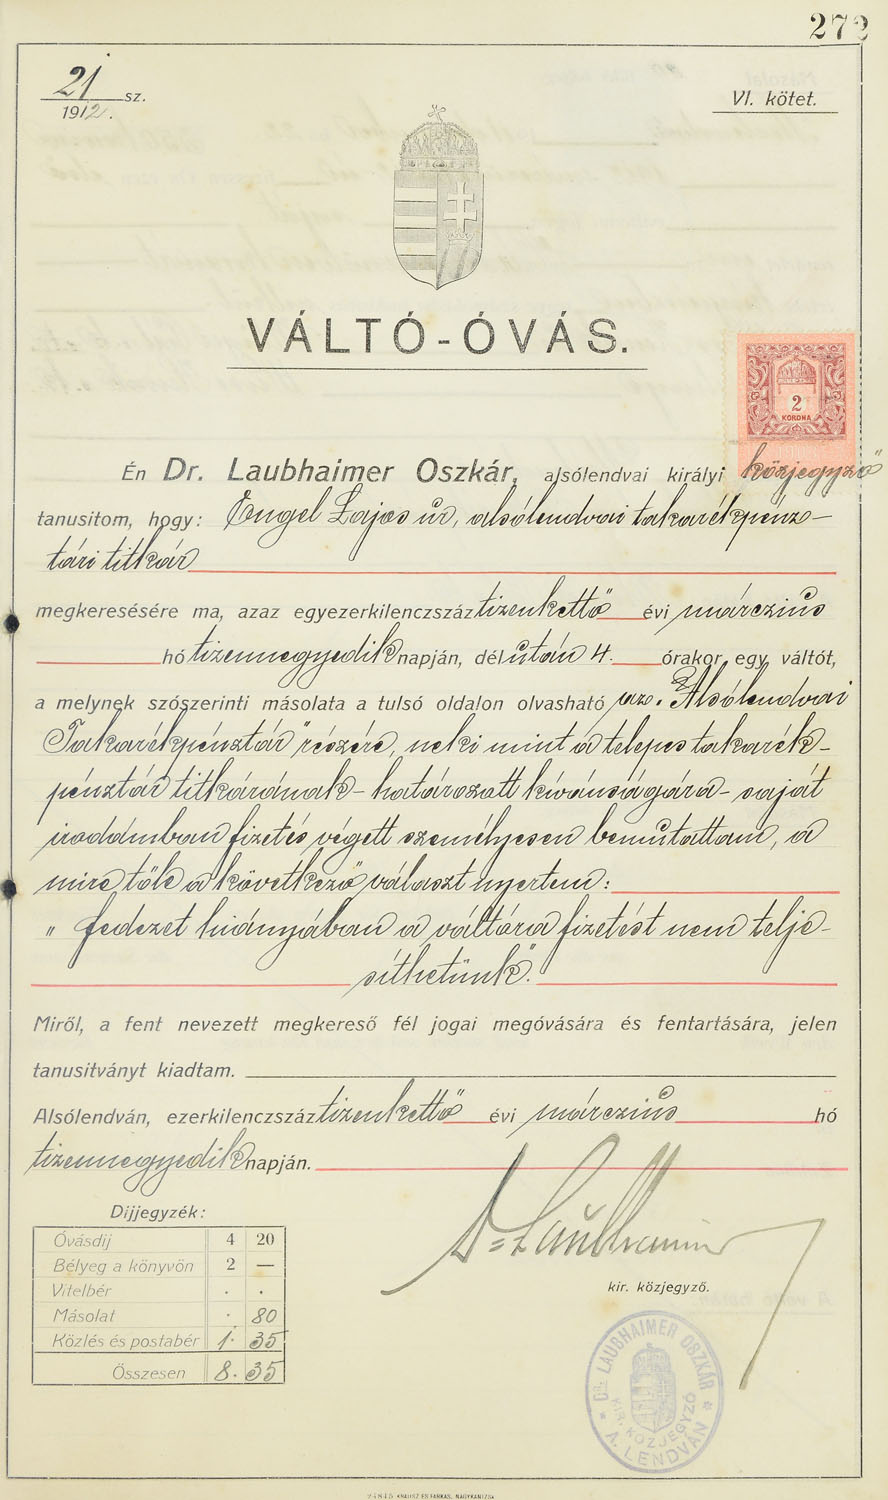 272
21 sz.
1912.
VI. kötet.
VÁLTÓ-ÓVÁS.
2
KORONA
Én Dr. Laubhaimer Oszkár, alsólendvai királyi közjegyző
tanusitom, hogy: Engel Lajos úr, alsólendvai takarékpénz-
tári titkár
megkeresésére ma, azaz egyezerkilenczszáz tizenkettő évi márczius
hó tizennegyedik napján, délután 4. órakor egy váltót,
a melynek szószerinti másolata a tulsó oldalon olvasható az „Alsólendvai
Takarékpénztár" részére, neki mint a telepes takarék-
pénztár titkárának - határozott kívánságára - saját
irodámban fizetés végett személyesen bemutattam, a
mire tőle a következő választ nyertem:
„fedezet hiányában a váltóra fizetést nem telje-
síthetünk".
Miről, a fent nevezett megkereső fél jogai megóvására és fentartására, jelen
tanusitványt kiadtam.
Alsólendván, ezerkilenczszáz tizenkettő évi márczius hó
tizennegyedik napján.
Dr Laubhaimer
kir. közjegyző.
Dijjegyzék:
Óvásdij 4 20
Bélyeg a könyvön 2 —
Vitelbér . .
Másolat . 80
Közlés és postabér 1. 35
Összesen 8. 35
Dr. LAUBHAIMER OSZKÁR
KIR. KÖZJEGYZŐ
A. LENDVÁN
24845 KRAUSZ ÉS FARKAS, NAGYKANIZSA